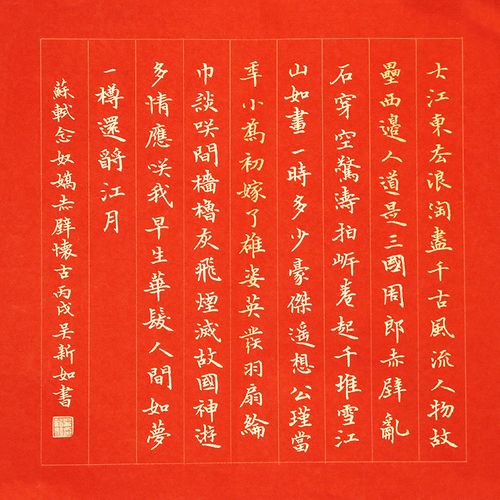 大江東去浪淘盡千古風流人物故
壘西邊人道是三國周郎赤壁亂
石穿空驚濤拍岸卷起千堆雪江
山如畫一時多少豪傑遙想公瑾當
年小喬初嫁了雄姿英發羽扇綸
巾談咲間檣櫓灰飛煙滅故國神遊
多情應咲我早生華髮人間如夢
一樽還酹江月
蘇軾念奴嬌赤壁懷古丙戌吳新如書